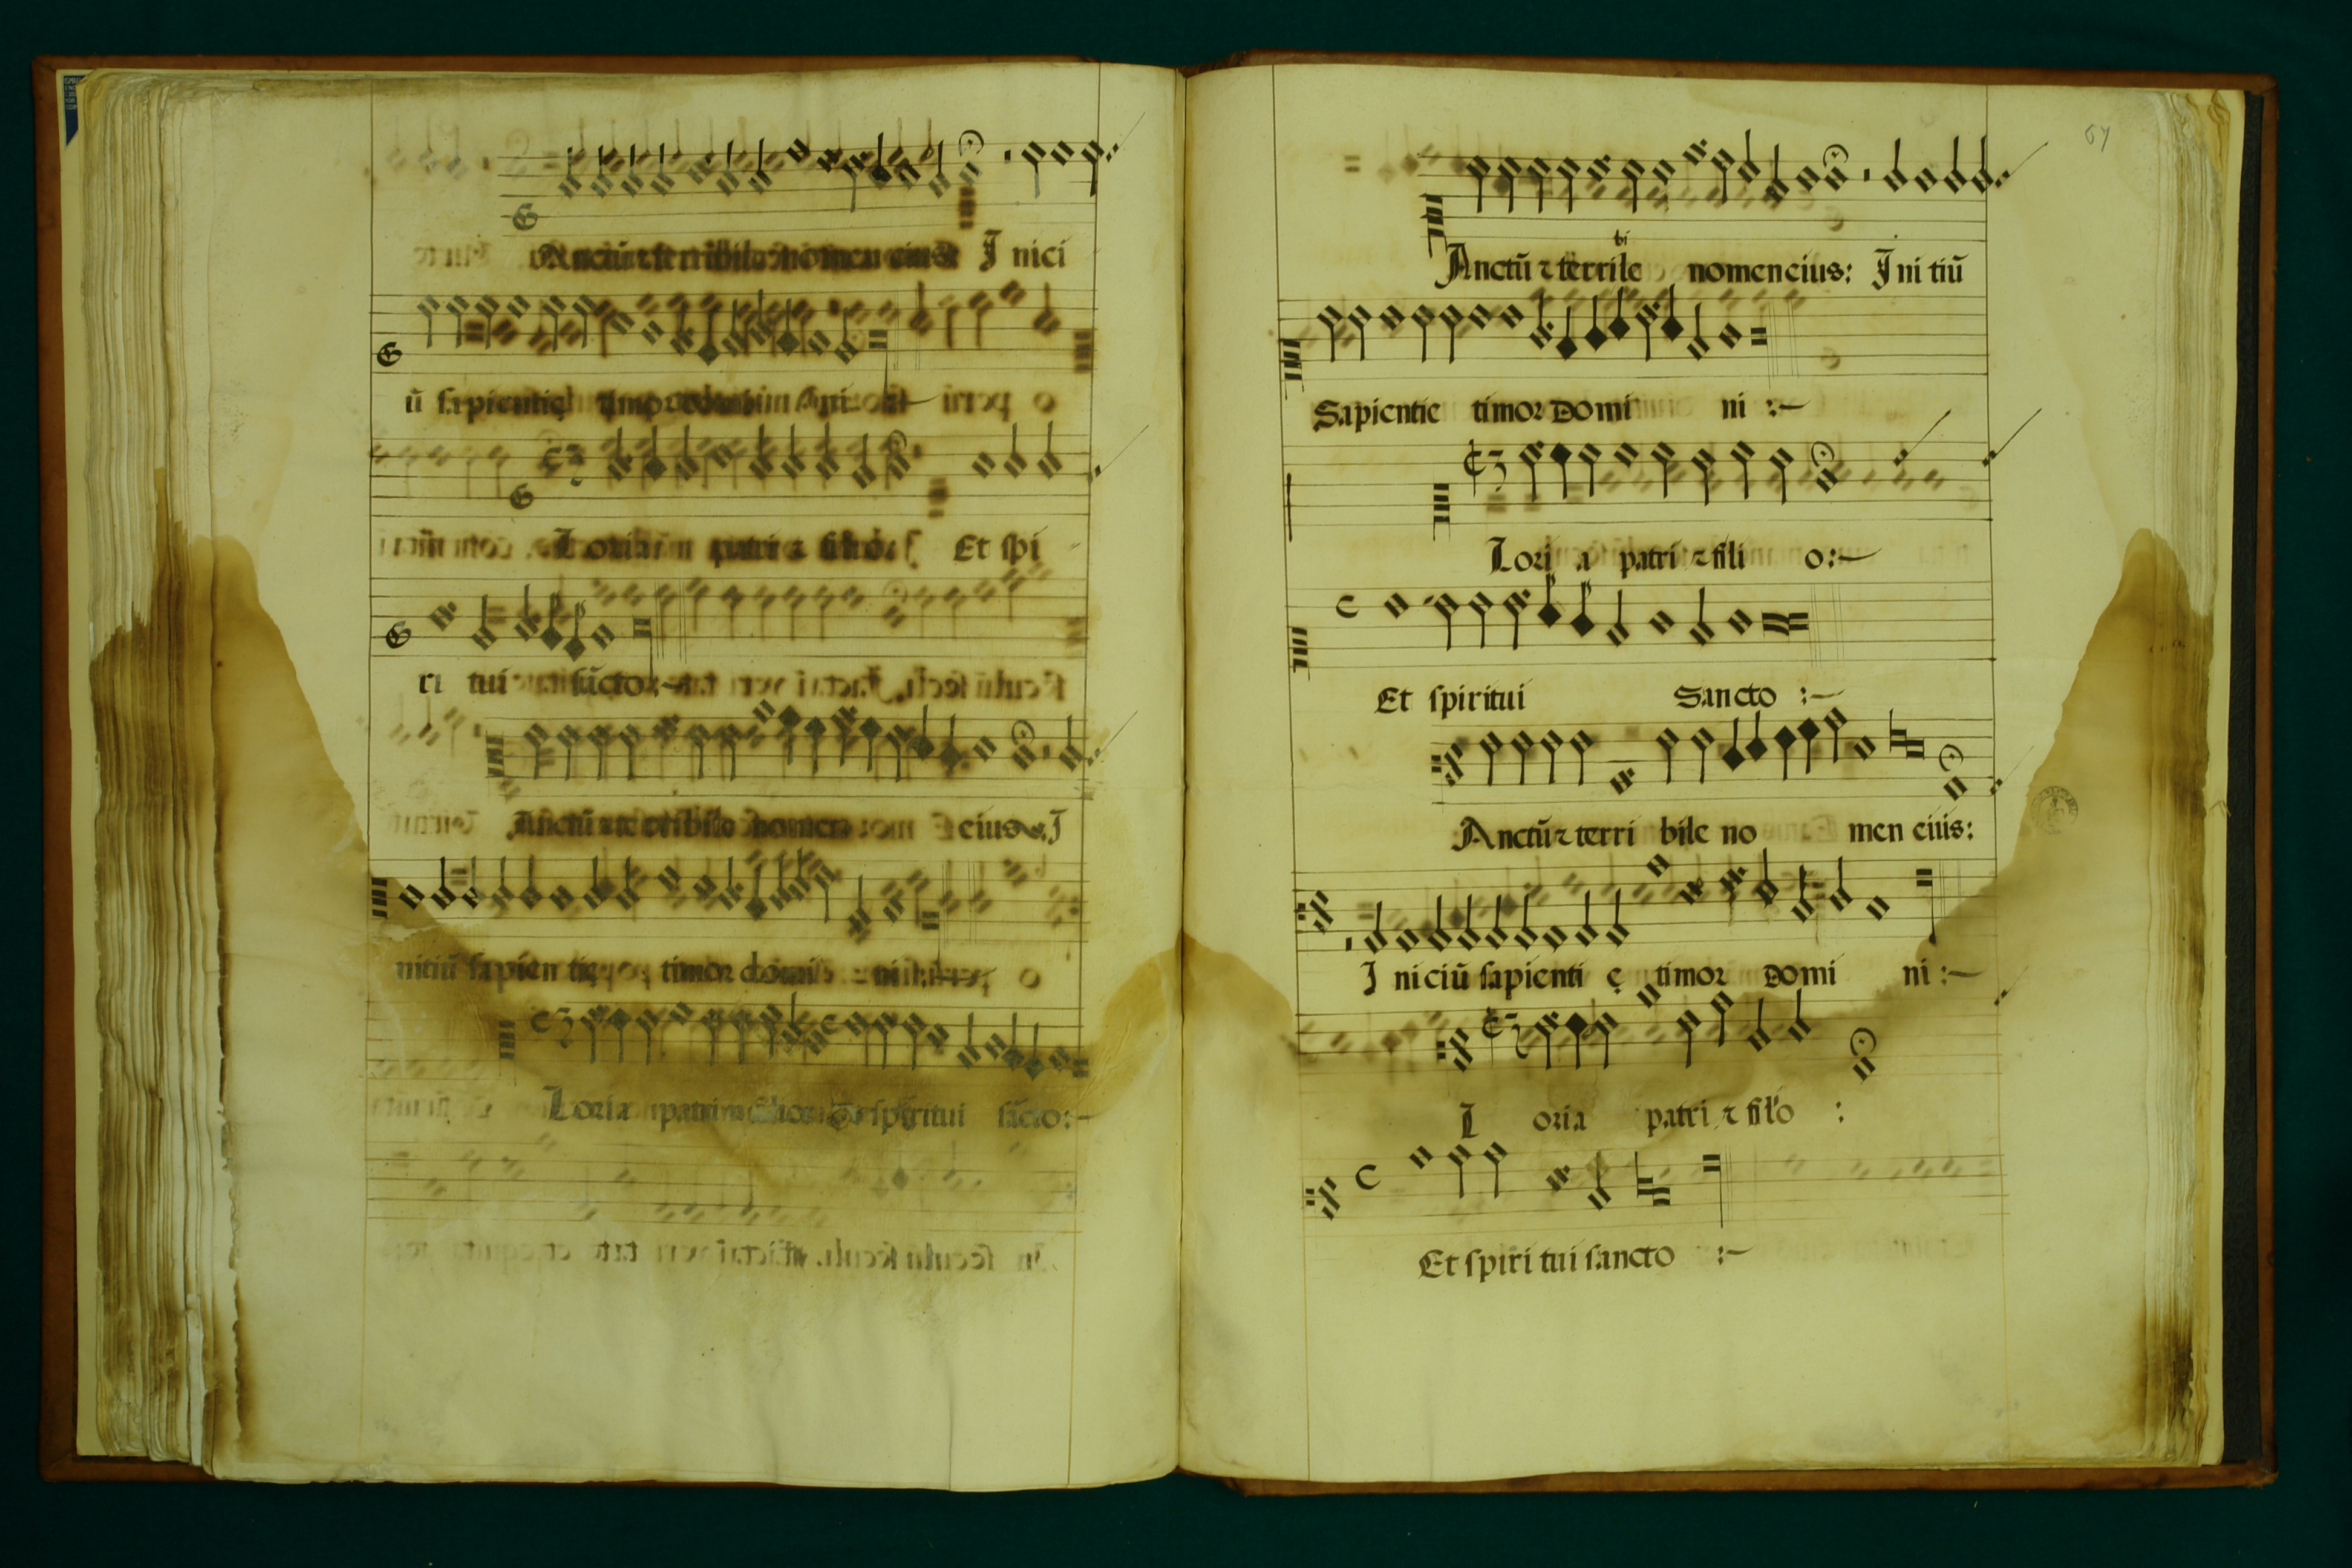 Anctũ ⁊ terribile nomen eius: I nici
ũ sapientię timor domini
Loria patri ⁊ filio: Et spi
ri tui sãcto :-
Anctũ ⁊ terribile nomen eius. I
nitiũ sapien tię timor domi ni :-
Loria patri ⁊ filio Et spiritui sãcto:-
67
bi
Anctũ ⁊ terrile nomen eius: I ni tiũ
Sapientie timor Domi ni :-
Lori a patri ⁊ fili o:-
Et spiritui Sancto :-
Anctũ ⁊ terri bile no men eius:
I niciũ sapienti ę timor Domi ni :-
L oria patri ⁊ filo :
Et spiri tui sancto :-